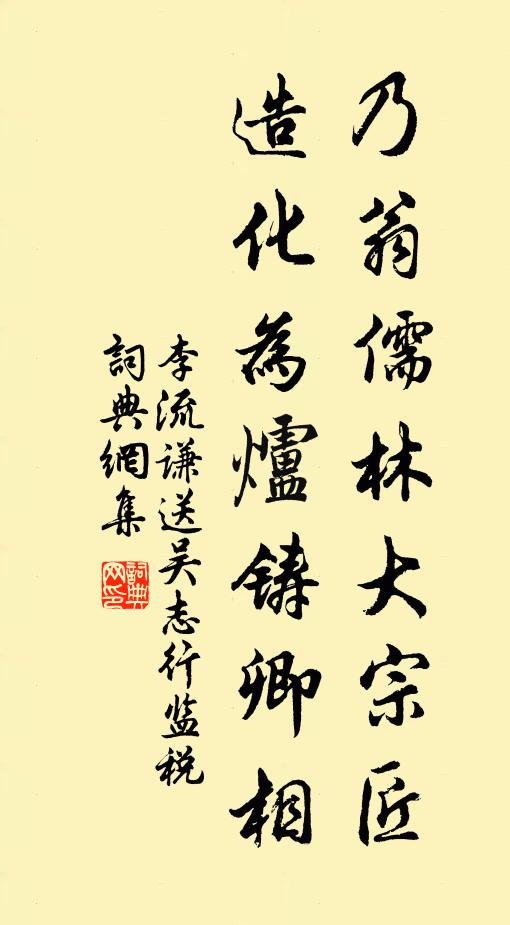 乃翁儒林大宗匠
造化為爐鑄卿相
李流謙送吴志行监税
詞典網集
詞典网印